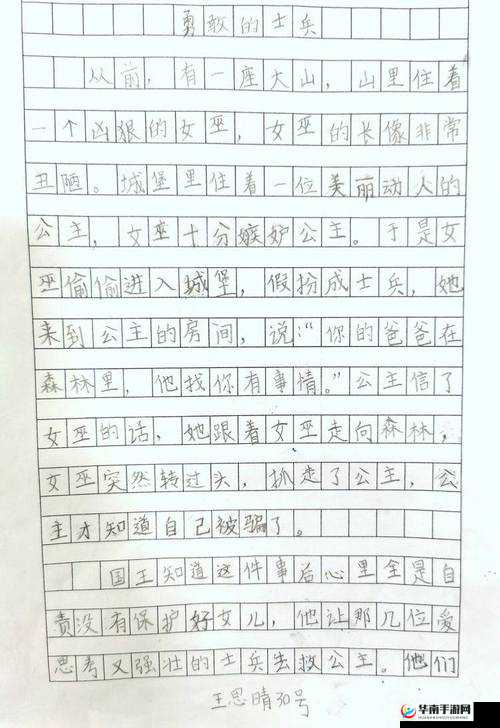 勇敢的士兵
从前，有一座大山，山里住着
一个凶狠的女巫，女巫的长像非常
丑陋。城堡里住着一位美丽动人的
公主，女巫十分嫉妒公主。于是女
巫偷偷进入城堡，假扮成士兵，她
来到公主的房间，说：“你的爸爸在
森林里，他找你有事情。”公主信了
女巫的话，她跟着女巫走向森林，
女巫突然转过头，抓走了公主，公
主才知道自己被骗了。
国王知道这件事后心里全是自
责没有保护好女儿，他让那几位爱
思考又强壮的士兵去救公主。他们
王思晴30号
华南手游网